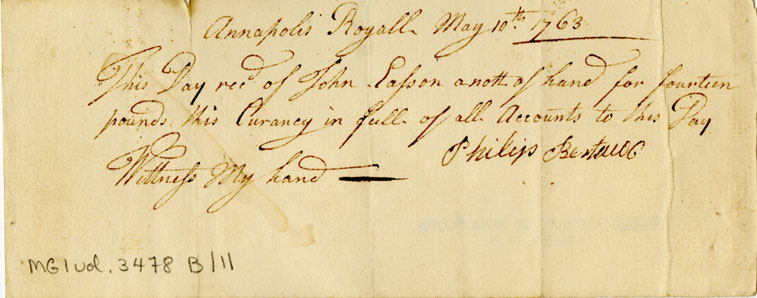 Annapolis Royall May 10th 1763
This Day recd of John Easson a nott of hand for fourteen
pounds this Curancy in full of all Accounts to this Day
Wittness My hand
Philip
MG1 vol. 3478 B/11